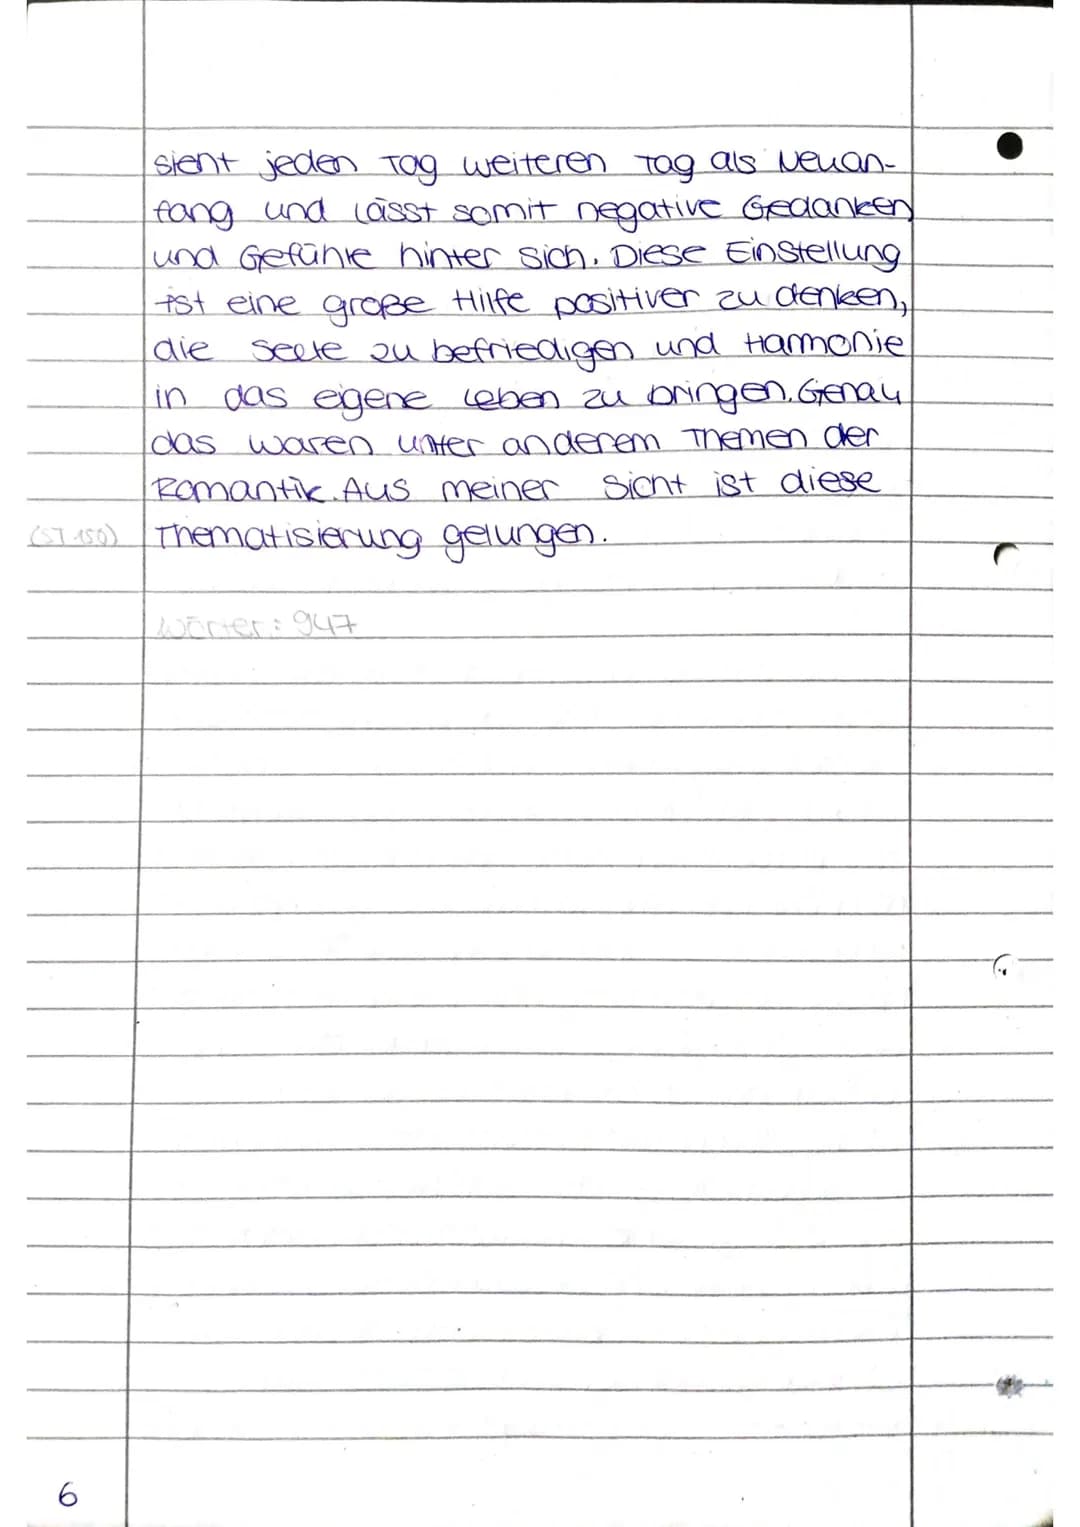 sieht jeden Tag weiteren Tag als Neuan-
fang und lässt somit negative Gedanken
und Gefühle hinter sich. Diese Einstellung
ist eine große Hilfe positiver zu denken,
die Seele zu befriedigen und Harmonie
in das eigene Leben zu bringen. Genau
das waren unter anderem Themen der
Romantik. Aus meiner Sicht ist diese
(57 150) Thematisierung gelungen.
Wörter: 947
6